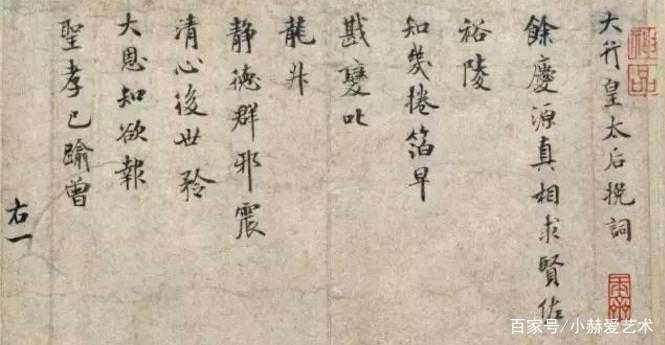 大行皇太后挽詞
餘慶源真相求賢佐
裕陵
知幾捲箔早
戡變叱
龍升
静德群邪震
清心後世矜
大恩知欲報
聖孝已踰曾
右一
百家号/小赫爱艺术